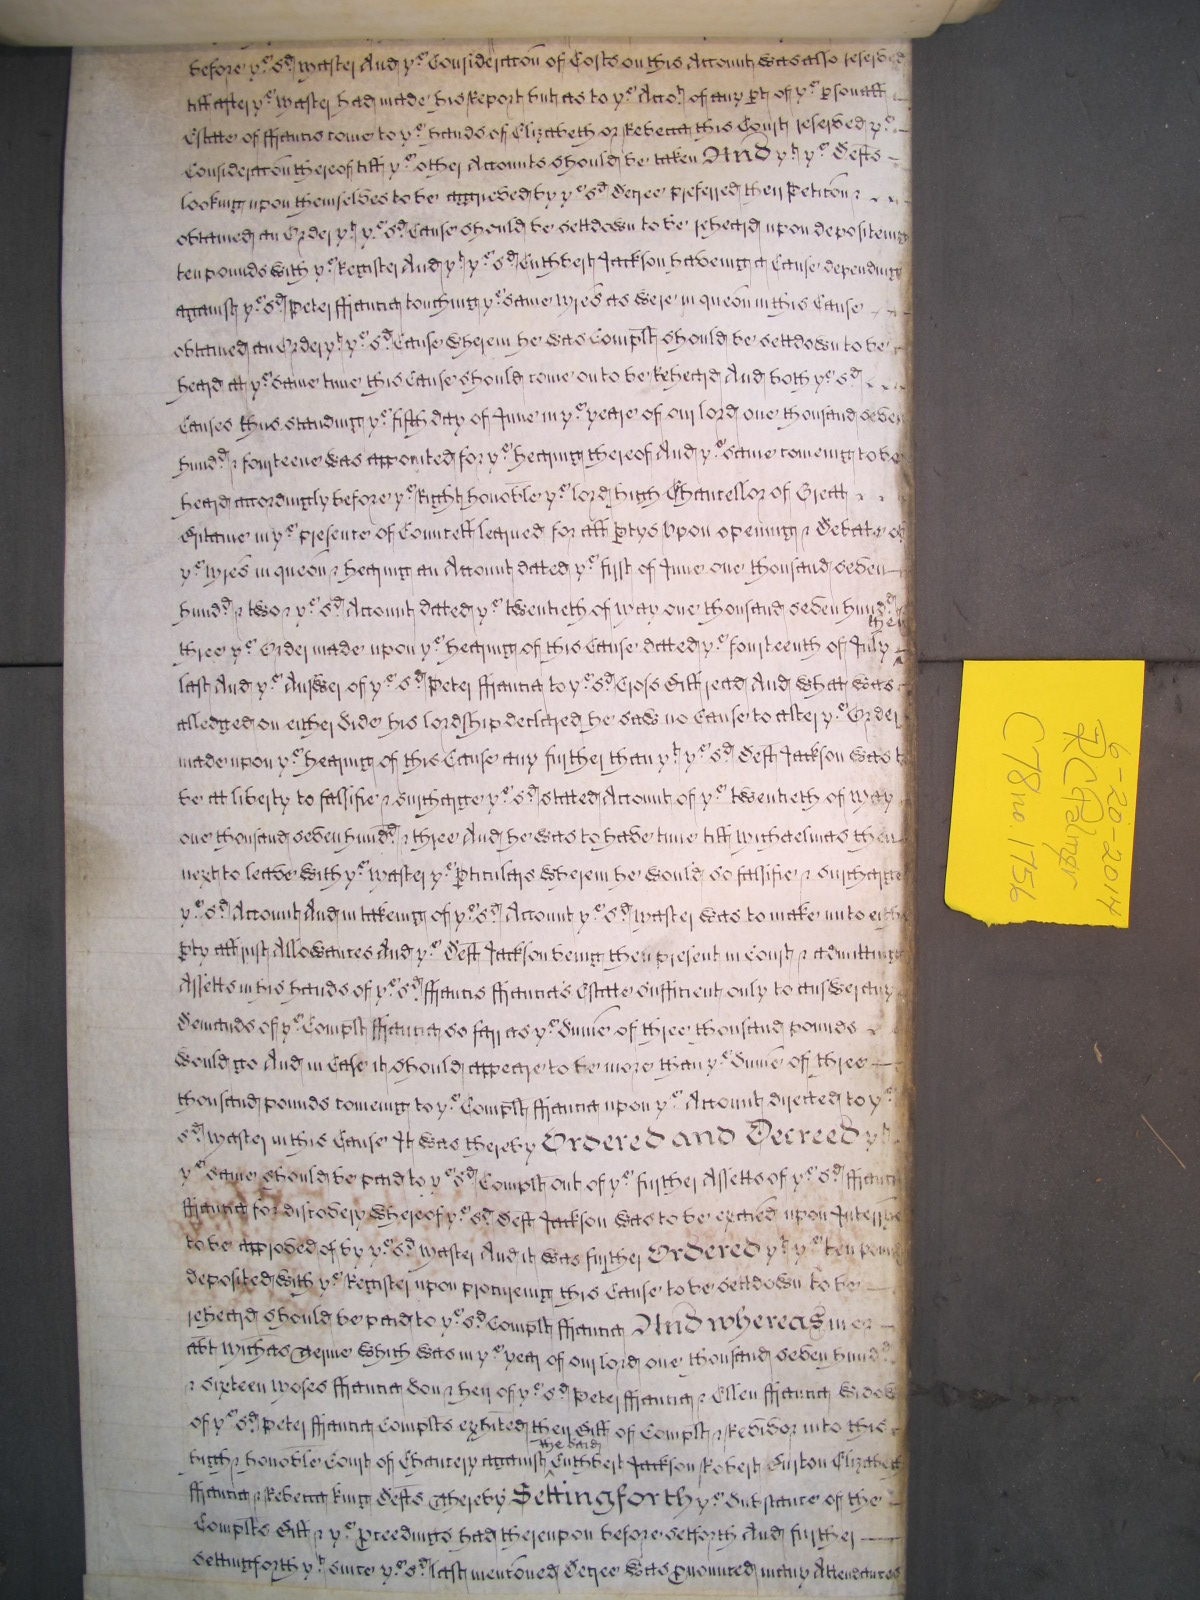 before ye sd Master And ye Consideracon of Costs on this Account was also reserved
till after ye Master had made his Report but as to ye Acct of any pt of ye psonall
Estate of ffrancis come to ye hands of Elizabeth or Rebecca this Court reserved ye
Consideracon thereof till ye other Accounts should be taken And yt ye Defts
looking upon themselves to be aggrieved by ye sd Decree preferred their Peticon &
obtained an Order yt ye sd Cause should be settdown to be reheard upon depositeing
ten pounds with ye Register And yt ye sd Cuthbert Jackson haveing a Cause depending
against ye sd Peter ffrancia touching ye same mres as were in queon in this Cause
obtained an Order yt ye sd Cause wherein he was Complt should be settdown to be
heard at ye same time this Cause should come on to be Reheard And both ye sd
Causes thus standing ye fifth day of June in ye yeare of our lord one thousand seven
hundd & fourteene was appointed for ye hearing thereof And ye same comeing to be
heard accordingly before ye Right honoble ye lord high Chancellor of Great
Britaine in ye presence of Councell learned for all ptys Upon opening & Debate of
ye mres in queon & hearing an Account dated ye first of June one thousand seven
hundd & two & ye sd Account dated ye twentieth of May one thousand seven hundd
three ye Order made upon ye hearing of this Cause dated ye fourteenth of July then
last And ye Answer of ye sd Peter ffrancia to ye sd Cross Bill read And what was
alledged on either Side his lordship declared he saw no Cause to alter ye Order
made upon ye hearing of this Cause any further than yt ye sd Deft Jackson was to
be at liberty to falsifie & surcharge ye sd stated Account of ye twentieth of May
one thousand seven hundd & three And he was to have time till Michaelmas then
next to leave with ye Master ye pticulars wherein he would so falsifie & surcharge
ye sd Account And in takeing of ye sd Account ye sd Master was to make unto either
pty all just Allowances And ye Deft Jackson being then present in Court & admitting
Assetts in his hands of ye sd ffrancis ffrancia's Estate sufficient only to answer any
demands of ye Complt ffrancia so farr as ye Sume of three thousand pounds
would go And in Case it should appeare to be more than ye Sume of three
thousand pounds comeing to ye Complt ffrancia upon ye Account directed to ye
sd Master in this Cause It was thereby Ordered and Decreed yt
ye same should be paid to ye sd Complt out of ye further Assetts of ye sd ffrancis
ffrancia for discovery whereof ye sd Deft Jackson was to be exaied upon
to be approved of by ye sd Master And it was further Ordered yt ye ten pounds
deposited with ye Register upon procureing this Cause to be settdown to be
reheard should be paid to ye sd Complt ffrancia And whereas in or
abt Michas Terme which was in ye year of our lord one thousand seven hundd
& sixteen Moses ffrancia Son & heir of ye sd Peter ffrancia & Ellen ffrancia Widow
of ye sd Peter ffrancia Complts exhited their Bill of Complt & Revivor into this
high & honoble Court of Chancery against the said Cuthbert Jackson Robert Elizabeth
ffrancia & Rebecca King Defts Thereby Setting forth ye Substance of the
Complts Bill & ye pceedings had thereupon before setforth And further
setting forth yt since ye sd last menconed Decree was pnounced many Attendances
6-20-2014
RCPalmer
C78 no. 1756